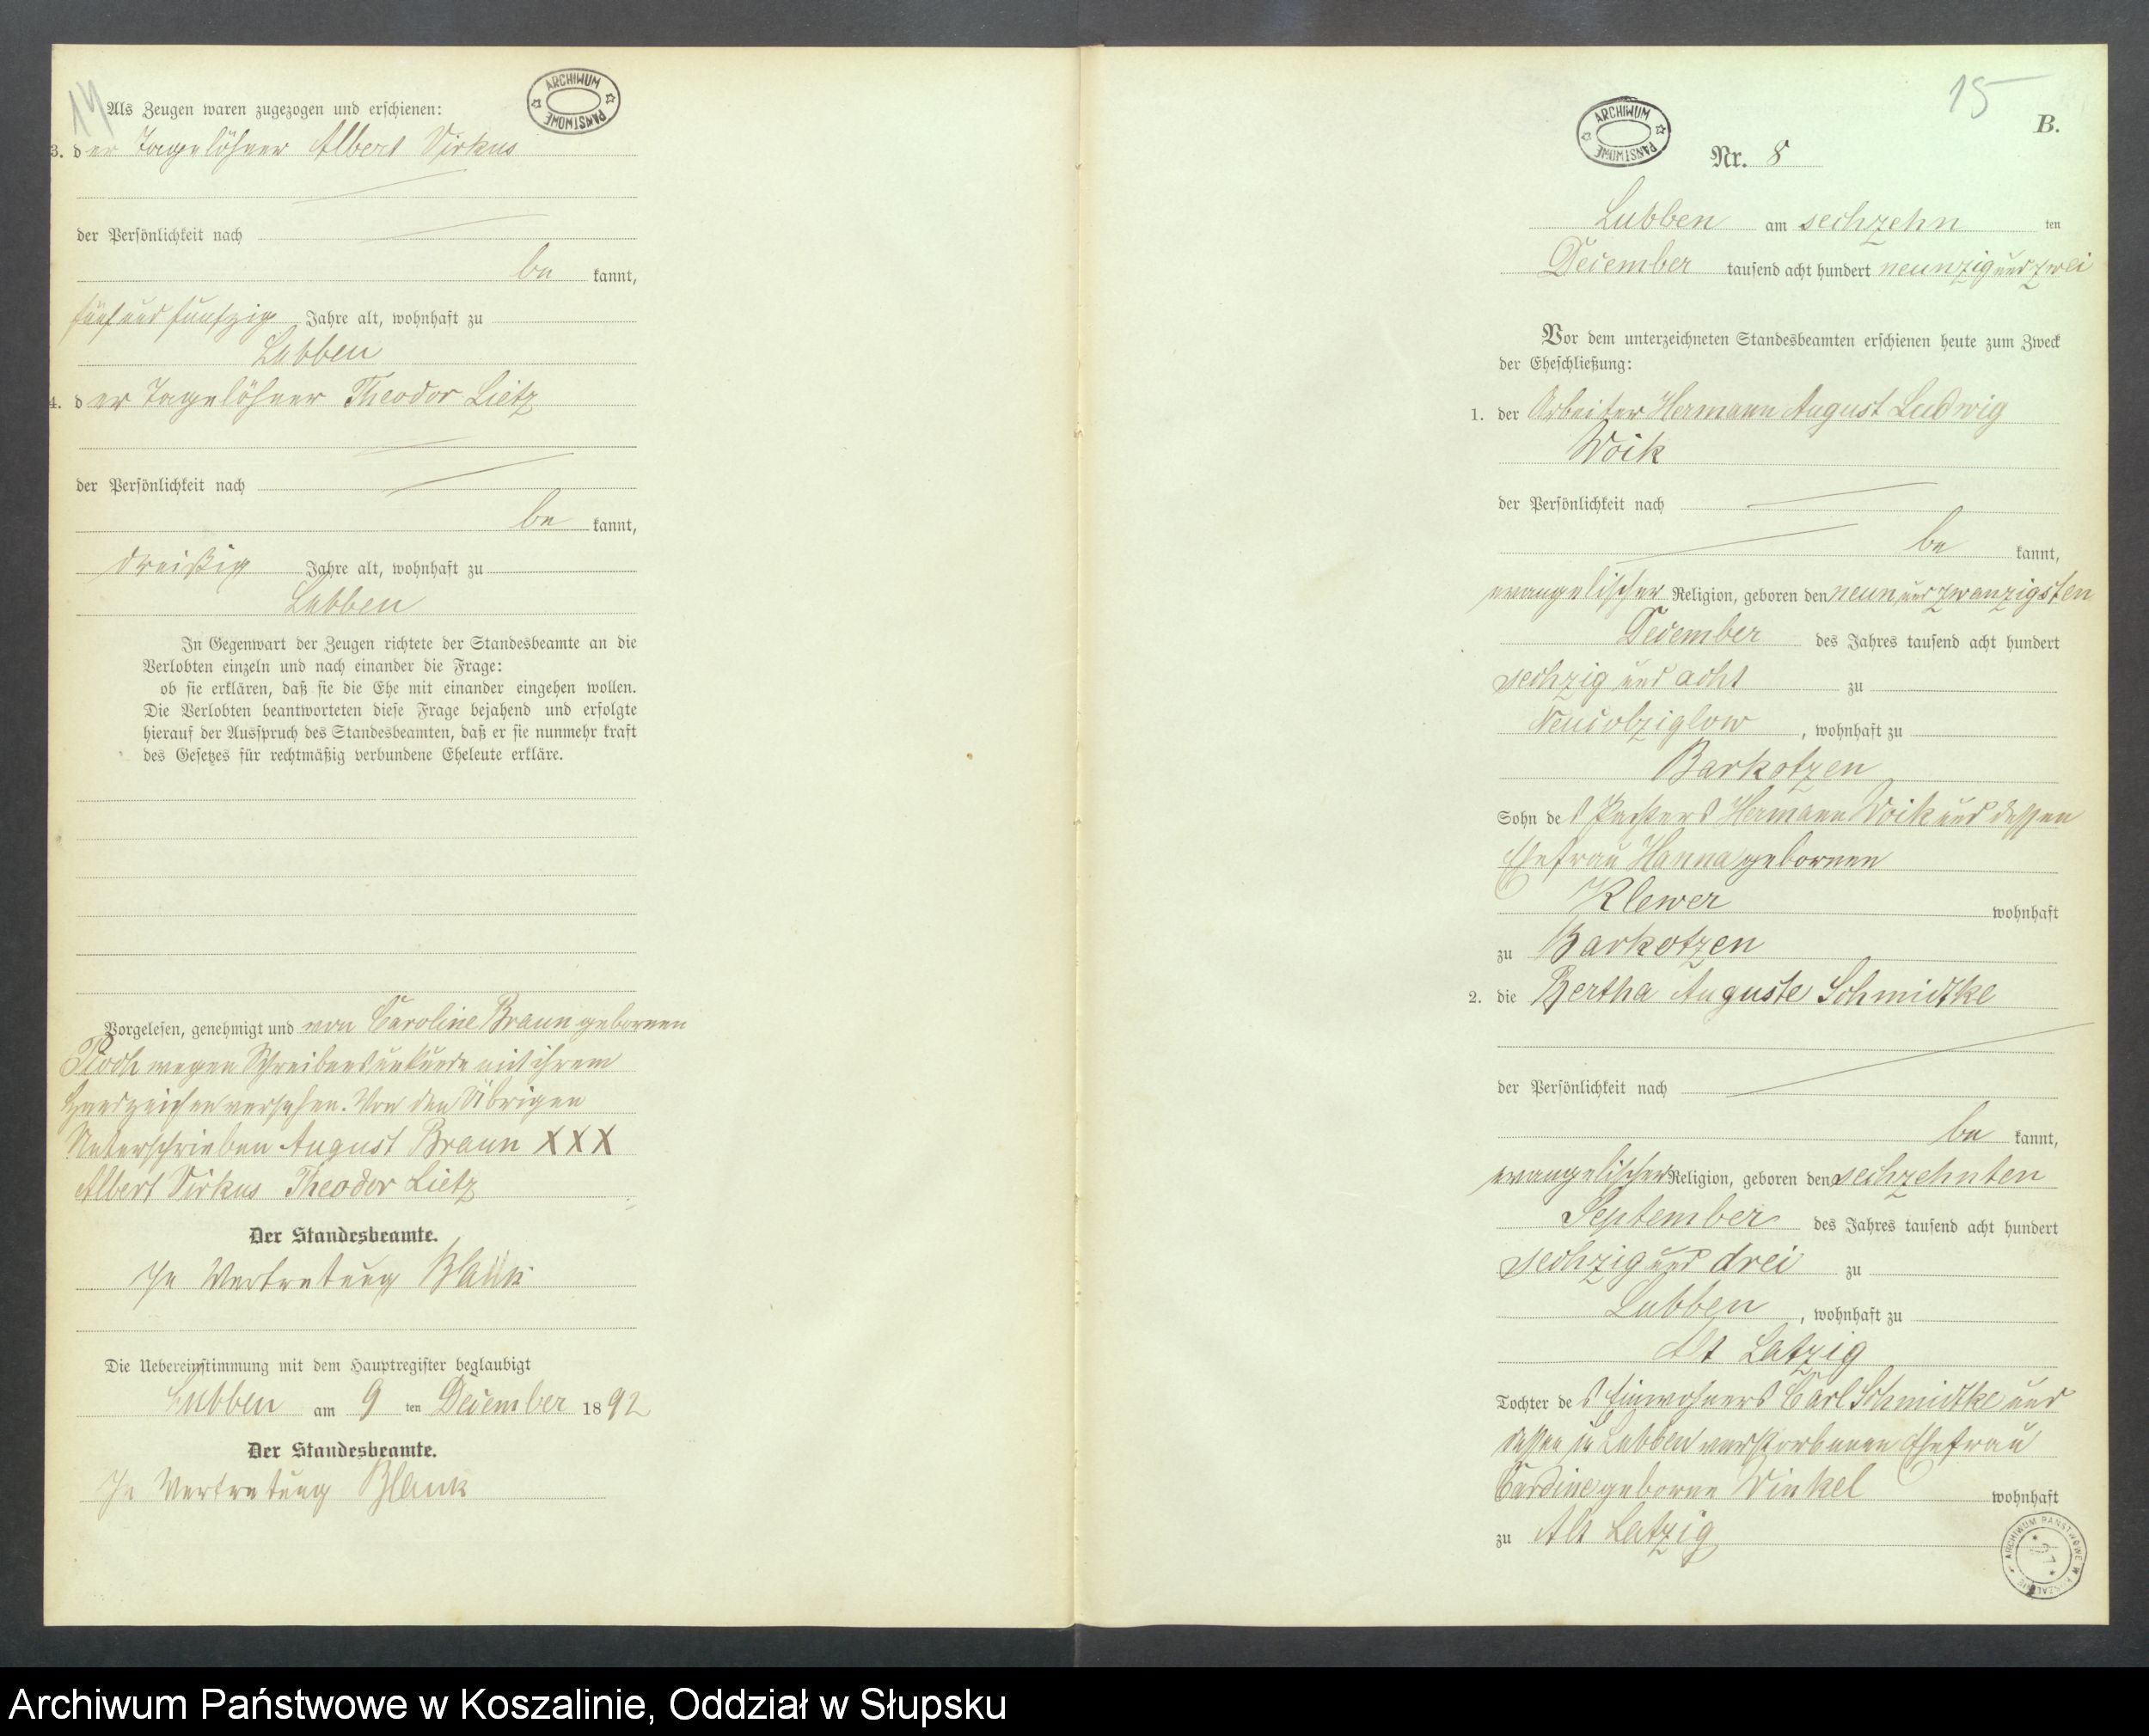 14
Als Zeugen waren zugezogen und erschienen:
ARCHIWUM PAŃSTWOWE
3. der Tagelöhner Albert Virkus
der Persönlichkeit nach
be kannt,
fünf und fünfzig Jahre alt, wohnhaft zu
Lubben
4. der Tagelöhner Theodor Lietz
der Persönlichkeit nach
be kannt,
dreißig Jahre alt, wohnhaft zu
Lubben
In Gegenwart der Zeugen richtete der Standesbeamte an die
Verlobten einzeln und nach einander die Frage:
ob sie erklären, daß sie die Ehe mit einander eingehen wollen.
Die Verlobten beantworteten diese Frage bejahend und erfolgte
hierauf der Ausspruch des Standesbeamten, daß er sie nunmehr kraft
des Gesetzes für rechtmäßig verbundene Eheleute erkläre.
Vorgelesen, genehmigt und von Caroline Braun gebornen
Pioch wegen Schreibensunkunde mit ihrem
Handzeichen versehen. Von den Übrigen
Unterschrieben August Braun XXX
Albert Virkus Theodor Lietz
Der Standesbeamte.
In Vertretung Blank
Die Uebereinstimmung mit dem Hauptregister beglaubigt
Lubben am 9 ten December 1892
Der Standesbeamte.
In Vertretung Blank
15
ARCHIWUM PAŃSTWOWE
B.
Nr. 8
Lubben am sechzehn ten
December tausend acht hundert neunzig und zwei
Vor dem unterzeichneten Standesbeamten erschienen heute zum Zweck
der Eheschließung:
1. der Arbeiter Hermann August Ludwig
Woik
der Persönlichkeit nach
be kannt,
evangelischer Religion, geboren den neun und zwanzigsten
December des Jahres tausend acht hundert
sechzig und acht zu
Neu, wohnhaft zu
Barkotzen
Sohn des Hermann Woik und dessen
Ehefrau Hanna gebornen
Klewer wohnhaft
zu Barkotzen
2. die Bertha Auguste Schmidtke
der Persönlichkeit nach
be kannt,
evangelischer Religion, geboren den sechzehnten
September des Jahres tausend acht hundert
sechzig und drei zu
Lubben, wohnhaft zu
Alt Latzig
Tochter des Einwohners Carl Schmidtke und
dessen in Lubben verstorbenen Ehefrau
geborne Vinkel wohnhaft
zu Alt Latzig
ARCHIWUM PAŃSTWOWE W KOSZALINIE
Archiwum Państwowe w Koszalinie, Oddział w Słupsku